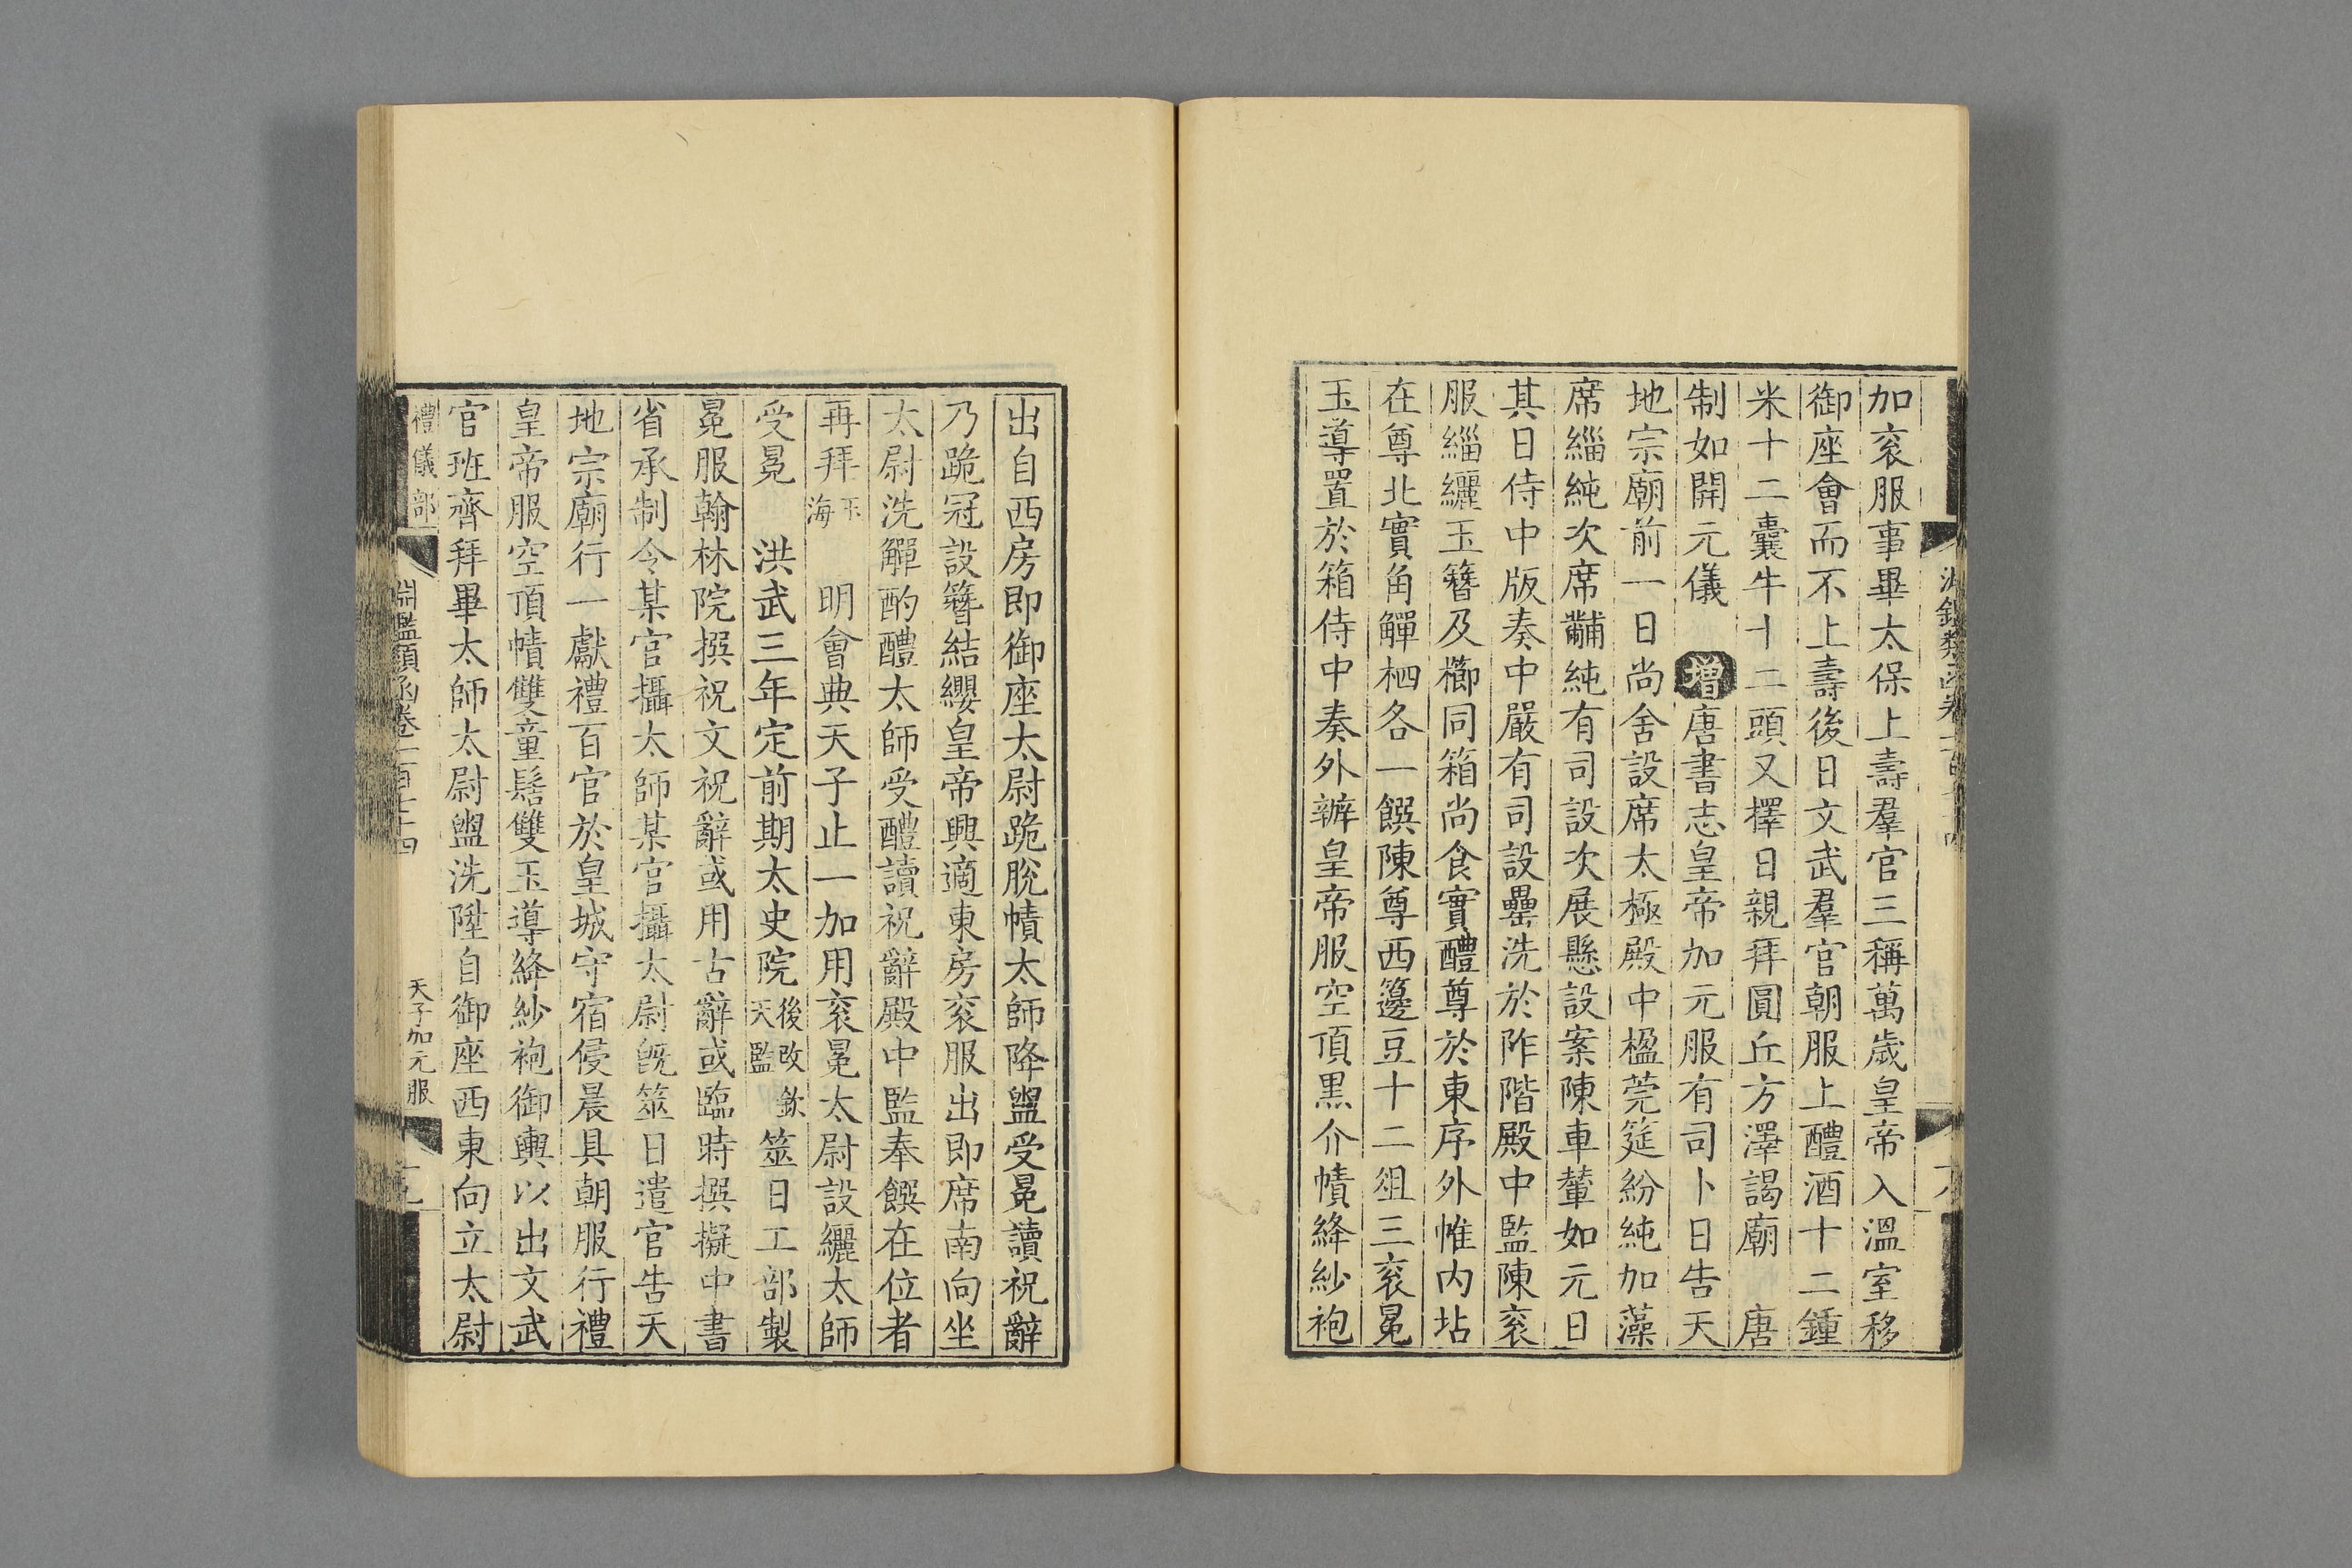 加衮服事畢太保上壽羣官三稱萬歲皇帝入溫室移
御座會而不上壽後日文武羣官朝服上醴酒十二鍾
米十二囊牛十二頭又擇日親拜圓丘方澤謁廟　唐
制如開元儀　增唐書志皇帝加元服有司卜日告天
地宗廟前一日尚舍設席太極殿中楹莞筵紛純加藻
席緇純次席黼純有司設次展懸設案陳車輦如元日
其日侍中版奏中嚴有司設罍洗於阼階殿中監陳衮
服緇纚玉簪及櫛同箱尚食實醴尊於東序外帷内坫
在尊北實角觶柶各一饌陳尊西籩豆十二俎三衮冕
玉導置於箱侍中奏外辦皇帝服空頂黑介幘絳紗袍
出自西房即御座太尉跪脫幘太師降盥受冕讀祝辭
乃跪冠設簪結纓皇帝興適東房衮服出即席南向坐
太尉洗觶酌醴太師受醴讀祝辭殿中監奉饌在位者
再拜玉海　明會典天子止一加用衮冕太尉設纚太師
受冕　洪武三年定前期太史院後改欽天監筮日工部製
冕服翰林院撰祝文祝辭或用古辭或臨時撰擬中書
省承制令某官攝太師某官攝太尉既筮日遣官告天
地宗廟行一獻禮百官於皇城守宿侵晨具朝服行禮
皇帝服空頂幘雙童髻雙玉導絳紗袍御輿以出文武
官班齊拜畢太師太尉盥洗陞自御座西東向立太尉
禮儀部
淵鑑類函卷一百七十四
天子加元服